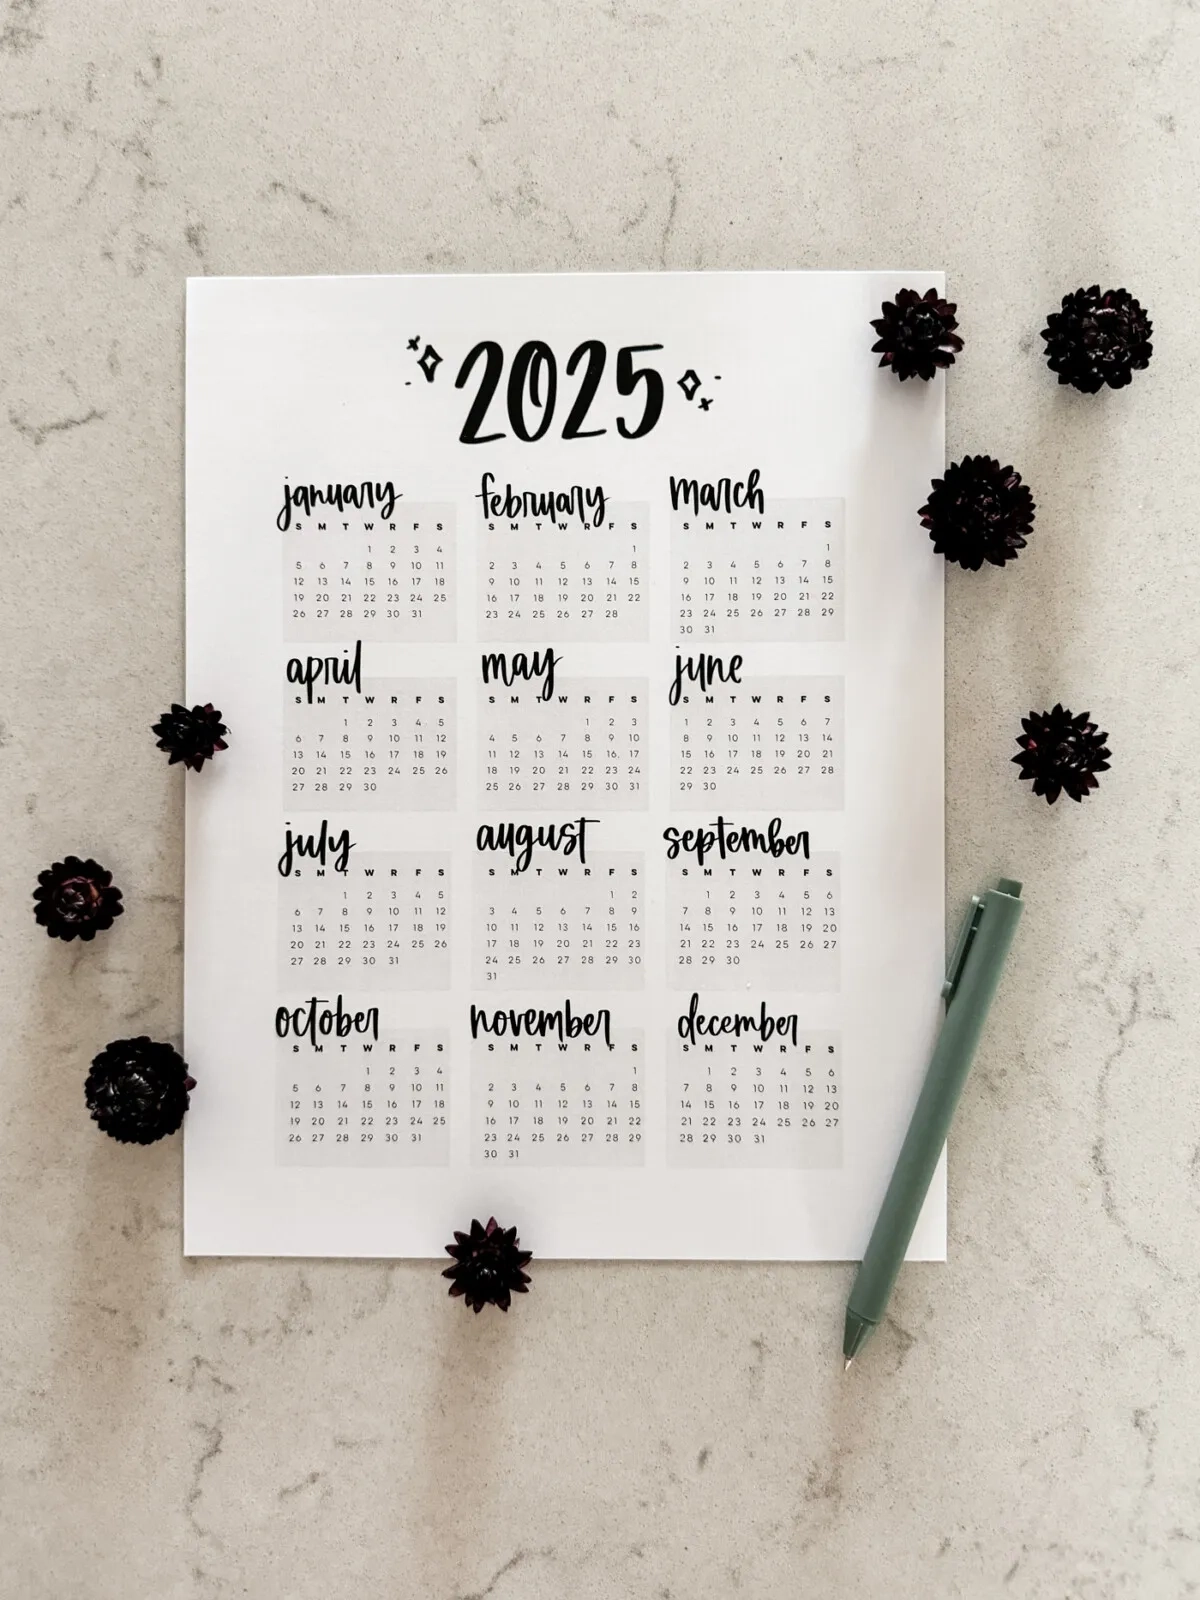 2025
january
S M T W R F S
1 2 3 4
5 6 7 8 9 10 11
12 13 14 15 16 17 18
19 20 21 22 23 24 25
26 27 28 29 30 31
february
S M T W R F S
1
2 3 4 5 6 7 8
9 10 11 12 13 14 15
16 17 18 19 20 21 22
23 24 25 26 27 28
march
S M T W R F S
1
2 3 4 5 6 7 8
9 10 11 12 13 14 15
16 17 18 19 20 21 22
23 24 25 26 27 28 29
30 31
april
S M T W R F S
1 2 3 4 5
6 7 8 9 10 11 12
13 14 15 16 17 18 19
20 21 22 23 24 25 26
27 28 29 30
may
S M T W R F S
1 2 3
4 5 6 7 8 9 10
11 12 13 14 15 16 17
18 19 20 21 22 23 24
25 26 27 28 29 30 31
june
S M T W R F S
1 2 3 4 5 6 7
8 9 10 11 12 13 14
15 16 17 18 19 20 21
22 23 24 25 26 27 28
29 30
july
S M T W R F S
1 2 3 4 5
6 7 8 9 10 11 12
13 14 15 16 17 18 19
20 21 22 23 24 25 26
27 28 29 30 31
august
S M T W R F S
1 2
3 4 5 6 7 8 9
10 11 12 13 14 15 16
17 18 19 20 21 22 23
24 25 26 27 28 29 30
31
september
S M T W R F S
1 2 3 4 5 6
7 8 9 10 11 12 13
14 15 16 17 18 19 20
21 22 23 24 25 26 27
28 29 30
october
S M T W R F S
1 2 3 4
5 6 7 8 9 10 11
12 13 14 15 16 17 18
19 20 21 22 23 24 25
26 27 28 29 30 31
november
S M T W R F S
1
2 3 4 5 6 7 8
9 10 11 12 13 14 15
16 17 18 19 20 21 22
23 24 25 26 27 28 29
30 31
december
S M T W R F S
1 2 3 4 5 6
7 8 9 10 11 12 13
14 15 16 17 18 19 20
21 22 23 24 25 26 27
28 29 30 31